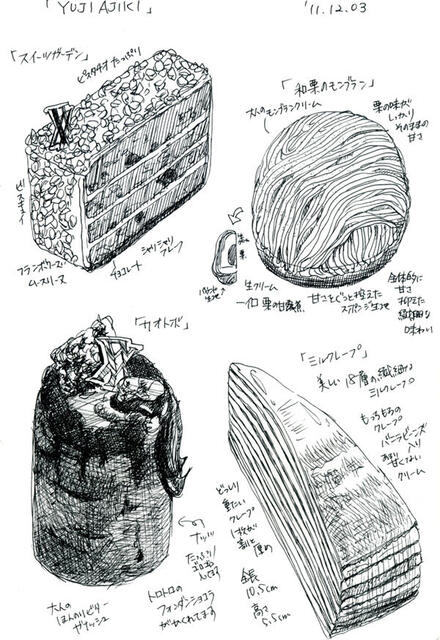 「YUJI AJIKI」
'11.12.03
「スイーツガーデン」
ピスタチオたっぷり
ビスキュイ
フランボワーズ
ムースリーヌ
チョコレート
シャリシャリ
「和栗のモンブラン」
大人のモンブランクリーム
栗の味が
しっかり
そのままの
甘さ
生クリーム
一口栗の甘露煮
甘さをぐっと控えた
スポンジ生地
全体的に
甘さ
抑えた
繊細な
味わい
「カオトボ」
大人の
ほんのりビター
ガナッシュ
ナッツ
たっぷり
トロトロの
フォンダンショコラ
がかくれてます
「ミルクレープ」
美しい18層の繊細な
ミルクレープ
もっちもちの
クレープ
バニラビーンズ
入り
あまり
甘くない
クリーム
どっしり
重たい
クレープ
1枚が
割と
厚め
全長
10.5cm
高さ
5.5cm